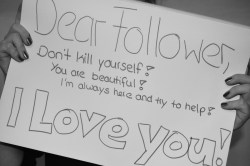 Dear Follower,
Don't kill yourself!
You are beautiful!
I'm always here and try to help!
I Love you!